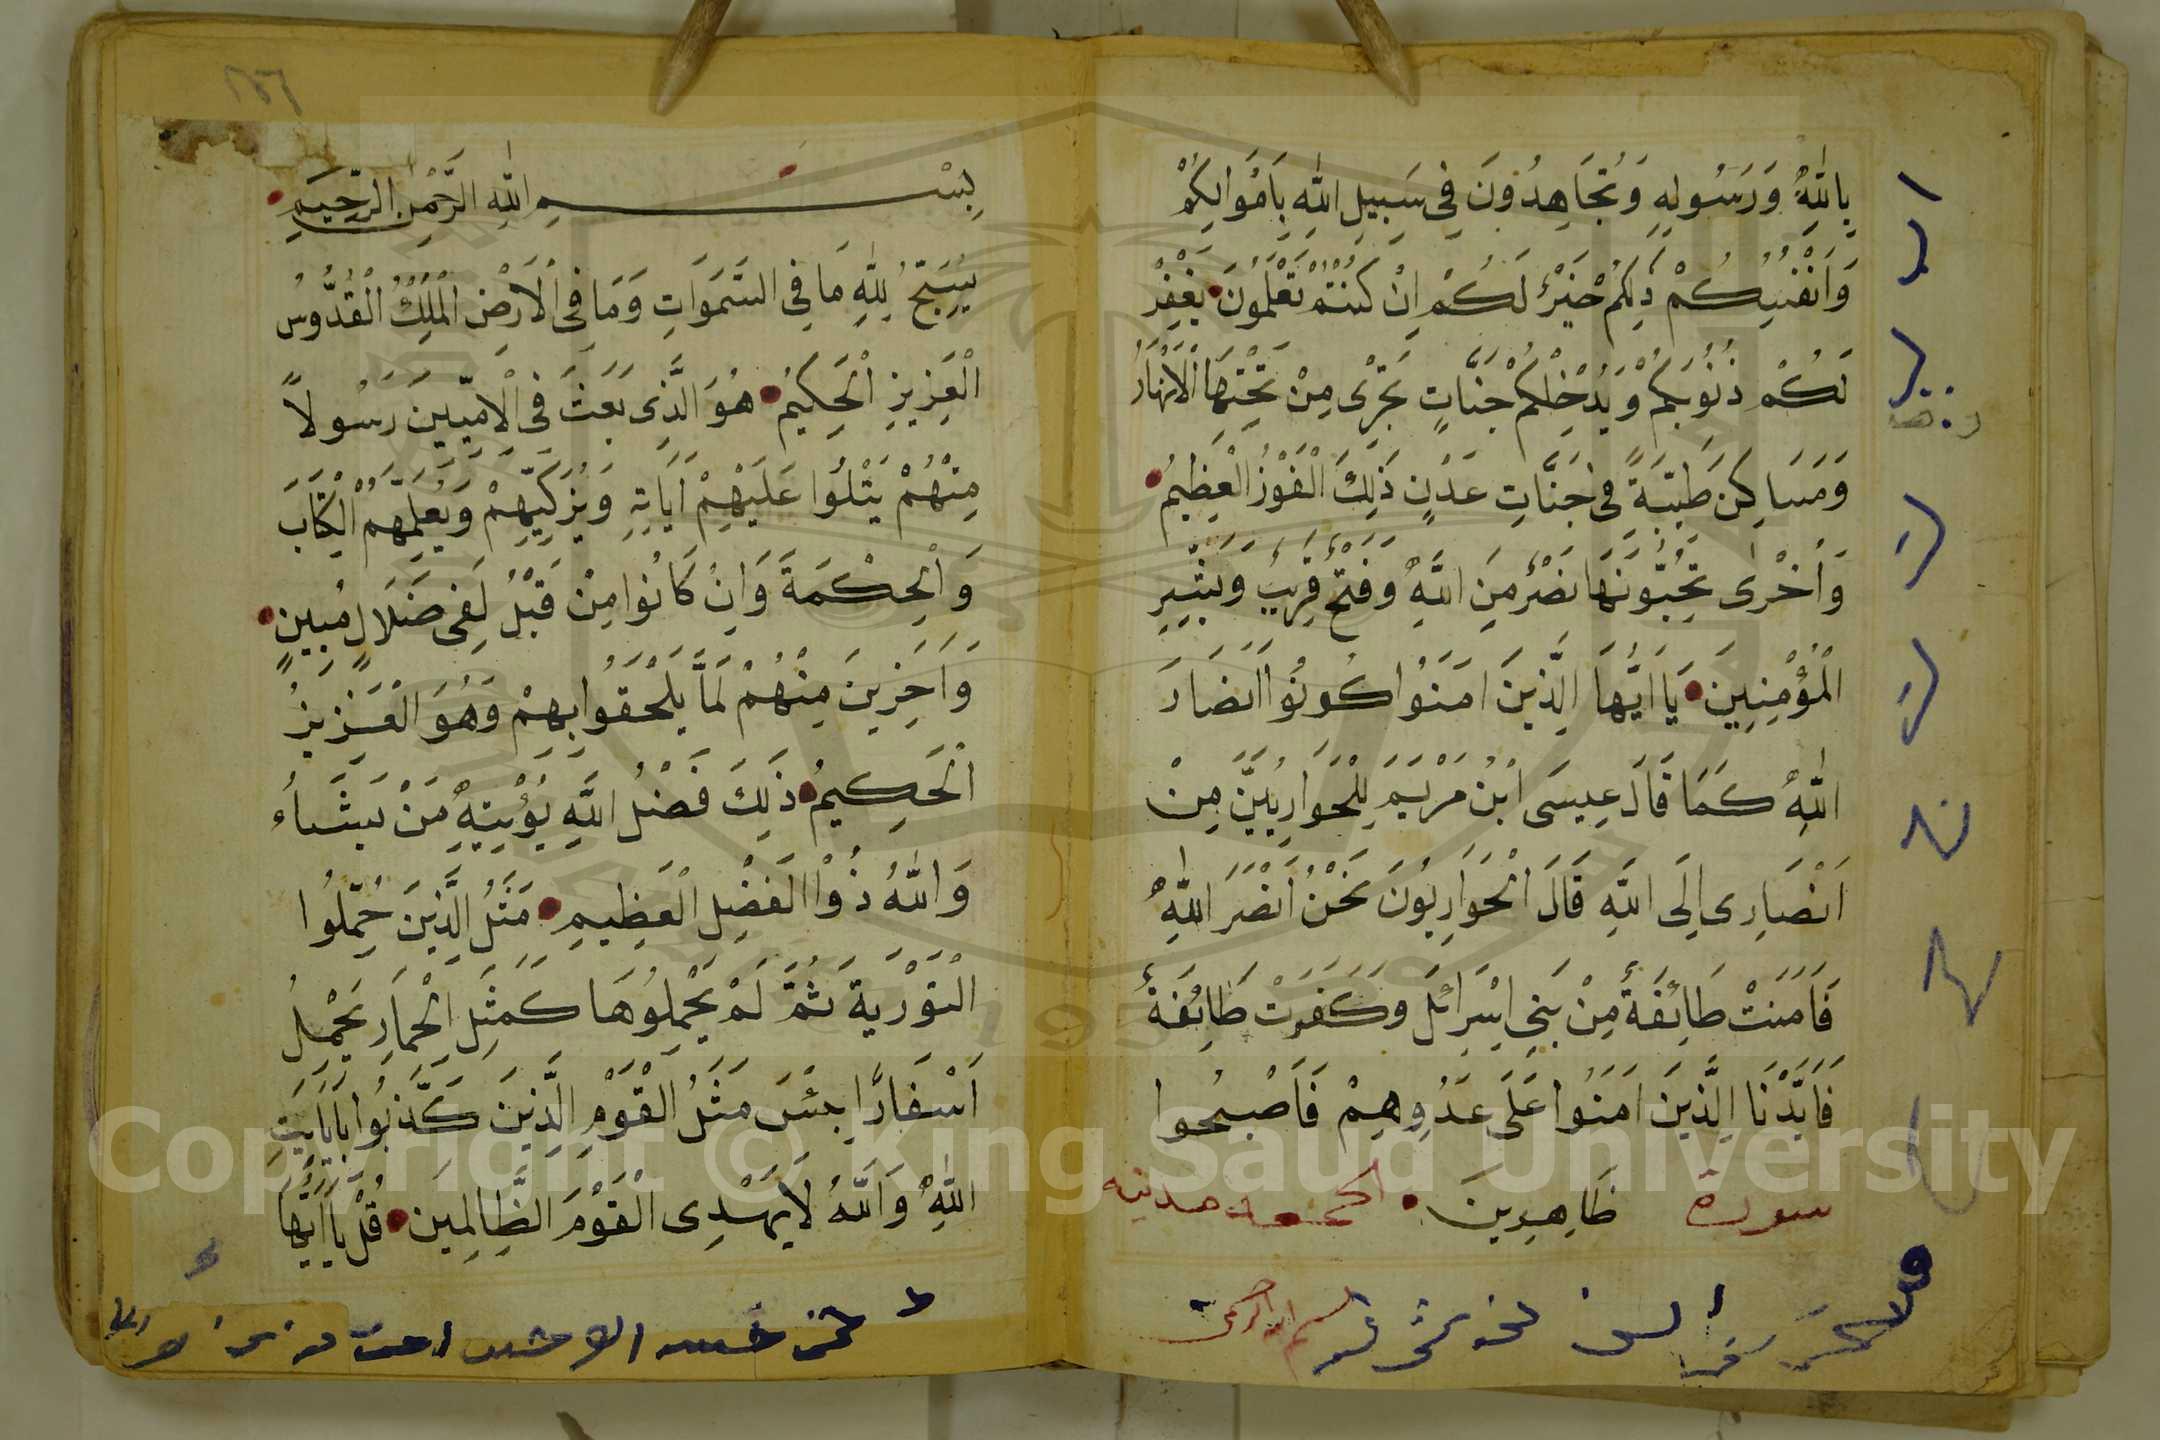 بِاللّٰهِ وَرَسُولِهِ وَتُجَاهِدُونَ فِي سَبِيلِ اللّٰهِ بِاَمْوَالِكُمْ
وَاَنْفُسِكُمْ ذٰلِكُمْ خَيْرٌ لَكُمْ اِنْ كُنْتُمْ تَعْلَمُونَ يَغْفِرْ
لَكُمْ ذُنُوبَكُمْ وَيُدْخِلْكُمْ جَنَّاتٍ تَجْرِى مِنْ تَحْتِهَا الْاَنْهَارُ
وَمَسَاكِنَ طَيِّبَةً فِى جَنَّاتِ عَدْنٍ ذَلِكَ الْفَوْزُ الْعَظِيمُ
وَاُخْرٰى تُحِبُّونَهَا نَصْرٌ مِنَ اللَّهِ وَفَتْحٌ قَرِيبٌ وَبَشِّرِ
الْمُؤْمِنِينَ يَا اَيُّهَا الَّذِينَ اٰمَنُوا كُونُوا اَنْصَارَ
اللّٰهِ كَمَا قَالَ عِيسَى ابْنُ مَرْيَمَ لِلْحَوَارِيِّينَ مِنْ
اَنْصَارِى اِلَى اللَّهِ قَالَ الْحَوَارِيُّونَ نَحْنُ اَنْصَارُ اللّٰهِ
فَاٰمَنَتْ طَائِفَةٌ مِنْ بَنِى اِسْرَائِلَ وَكَفَرَتْ طَائِفَةٌ
فَاَيَّدْنَا الَّذِينَ اٰمَنُوا عَلَى عَدُوِّهِمْ فَاَصْبَحُوا
ظَاهِرِينَ سورة الجمعة مدنيه
بِسْمِ اللّٰهِ الرَّحْمٰنِ الرَّحِيمِ
يُسَبِّحُ لِلّٰهِ مَا فِي السَّمَوَاتِ وَمَا فِى الْاَرْضِ الْمَلِكِ الْقُدُّوسِ
الْعَزِيزِ الْحَكِيمِ هُوَ الَّذِى بَعَثَ فِى الْاُمِّيِّينَ رَسُولاً
مِنْهُمْ يَتْلُوا عَلَيْهِمْ اٰيَاتِهِ وَيُزَكِّيهِمْ وَيُعَلِّمُهُمُ الْكِتَابَ
وَالْحِكْمَةَ وَاِنْ كَانُوا مِنْ قَبْلُ لَفِى ضَلَالٍ مُبِينٍ
وَاٰخَرِينَ مِنْهُمْ لَمَّا يَلْحَقُوا بِهِمْ وَهُوَ الْعَزِيزُ
الْحَكِيمُ ذَلِكَ فَضْلُ اللَّهِ يُؤْتِيهِ مَنْ يَشَاءُ
وَاللّٰهُ ذُوْا الْفَضْلِ الْعَظِيمِ مَثَلُ الَّذِينَ حُمِّلُوا
التَّوْرٰيةَ ثُمَّ لَمْ يَحْمِلُوهَا كَمَثَلِ الْحِمَارِ يَحْمِلُ
اَسْفَارًا بِئْسَ مَثَلُ الْقَوْمِ الَّذِينَ كَذَّبُوا بِاٰيَاتِ
اللّٰهِ وَاللَّهُ لَا يَهْدِى الْقَوْمَ الظَّالِمِينَ قُلْ يَا اَيُّهَا
Copyright © King Saud University